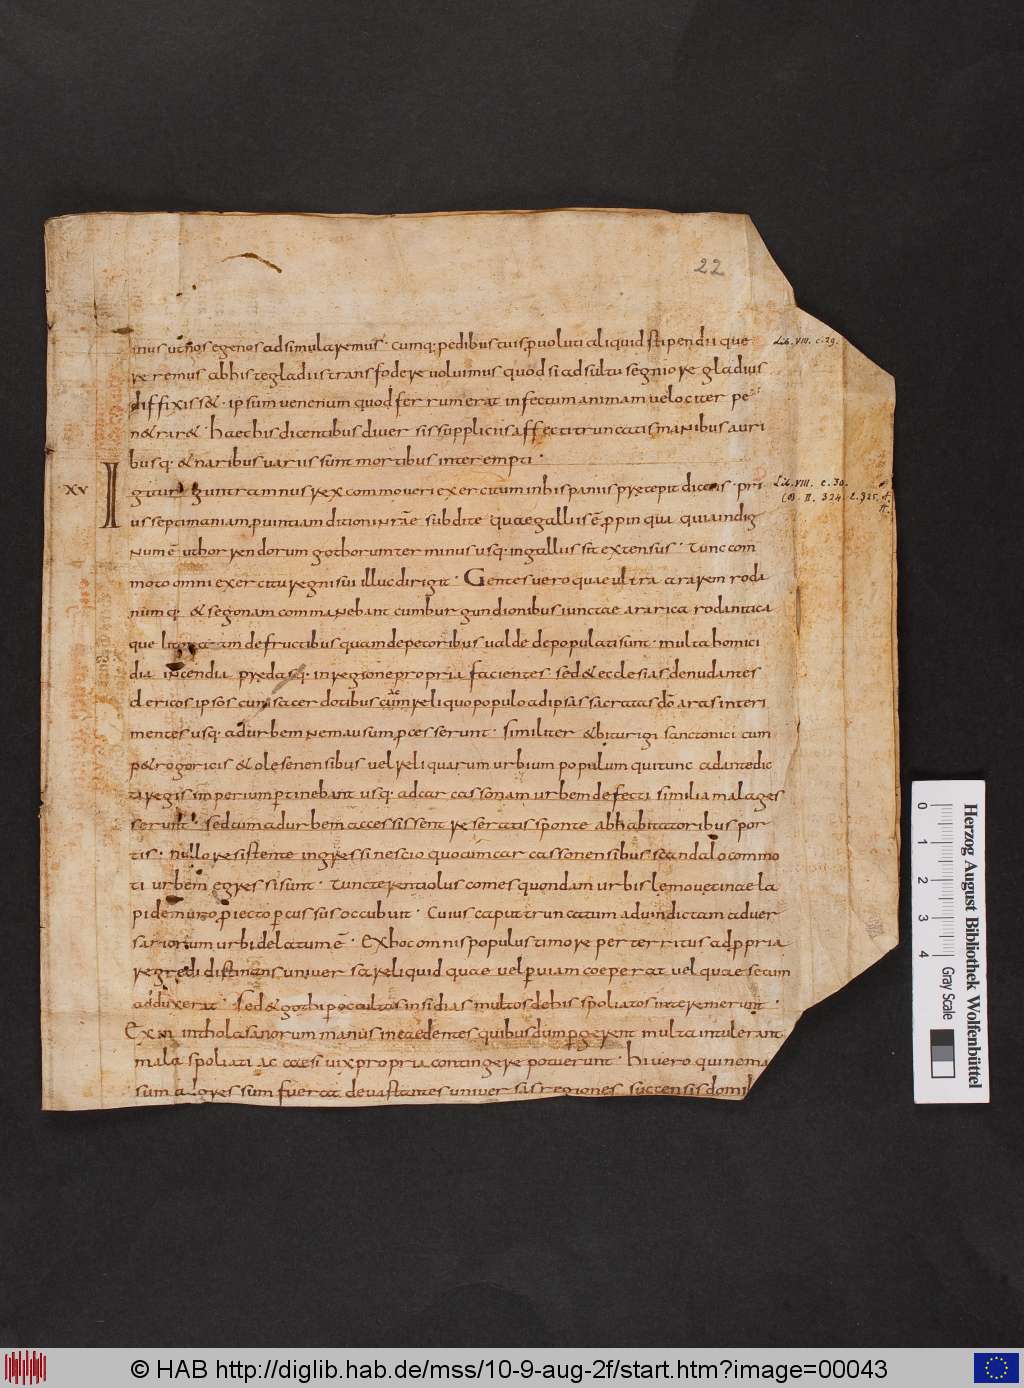 22
mus ut nos egenos adsimularemus · cumq; pedibus tuis pvoluti aliquid stipendii que
reremus ab his te gladiis transfodere voluimus quod si ad sultu segniore gladius
diffixiss& · ipsum venenum quod ferrum erat infectum animam velociter pe
n&rar& · haec his dicentibus diversis suppliciis affecti truncatis manibus auri
busq; & naribus variis sunt mortibus interempti ·
XV
Igitur guntramnus rex commoveri exercitum in hispaniis precepit dicens · pri
us septimaniam pvintiam ditioni nrae subdite quae gallus e propinqua quia indig
num e ut horrendorum gothorum terminus usq; in gallus sit extensus · Tunc com
moto omni exercitu regni sui illuc dirigit · Gentes vero quae ultra ararem roda
numq; & segonam commanebant cum burgundionibus iunctae ararica rodanitica
que litora tam de fructibus quam de pecoribus valde depopulati sunt · multa homici
dia incendia predasq; in regione propria facientes sed & ecclesias denudantes
clericos ipsos cum sacerdotibus ac reliquo populo ad ipsas sacratas do aras interi
mentes usq; ad urbem nemausum pcesserunt · similiter & biturigi sanctonici cum
p&rogoricis & olesenensibus vel reliquarum urbium populum qui tunc ad antedic
ti regis imperium ptinebant usq; ad carcassonam urbem defecti similia mala ges
serunt · sed cum ad urbem accessissent reseratis sponte ab habitatoribus por
tis · nullo resistente ingressi nescio quo cum carcassonensibus scandalo commo
ti urbem egressi sunt · Tunc terentiolus comes quondam urbis lemovecinae la
pide muro piecto pcussus occubuit · Cuius caput truncatum ad vindictam adver
sariorum urbi delatum e · Ex hoc omnis populus timore perterritus ad ppria
regredi distinans universa reliquid quae vel p viam coeperat vel quae secum
adduxerat · sed & gothi p occultas insidias multos de his spoliatos interemerunt ·
Exin in tholasanorum manus incedentes quibus dum pgerent multa intulerant
mala spoliati ac caesi vix propria contingere potuerunt · hi vero qui nema
sum adgressum fuerat devastantes universas regiones succensis domib
Lib. VIII. c. 29.
Lib. VIII. c. 30.
II. 324. l. 325.
0 1 2 3 4
Gray Scale
Herzog August Bibliothek Wolfenbüttel
© HAB http://diglib.hab.de/mss/10-9-aug-2f/start.htm?image=00043